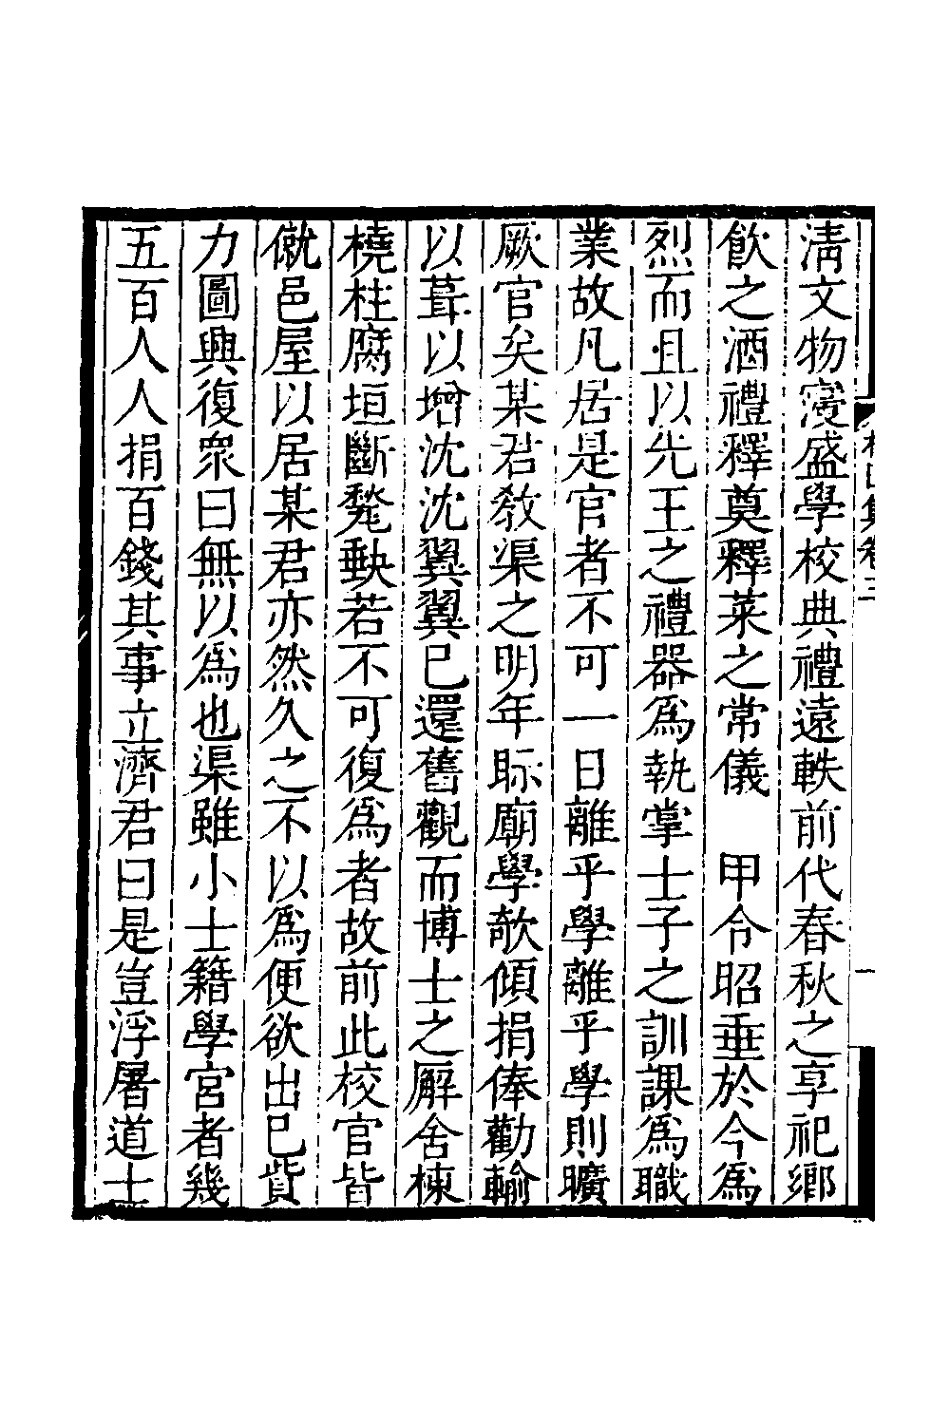 清文物寖盛學校典禮遠軼前代春秋之享祀鄉
飲之酒禮釋奠釋菜之常儀　甲令昭垂於今為
烈而且以先王之禮器為執掌士子之訓課為職
業故凡居是官者不可一日離乎學離乎學則曠
厥官矣某君敎渠之明年眎廟學欹傾捐俸勸輸
以葺以增沈沈翼翼已還舊觀而博士之廨舍棟
橈柱腐垣斷甃軼若不可復為者故前此校官皆
僦邑屋以居某君亦然久之不以為便欲出已貲
力圖興復眾曰無以為也渠雖小士籍學宮者幾
五百人人捐百錢其事立濟君曰是豈浮屠道士
集卷三
一